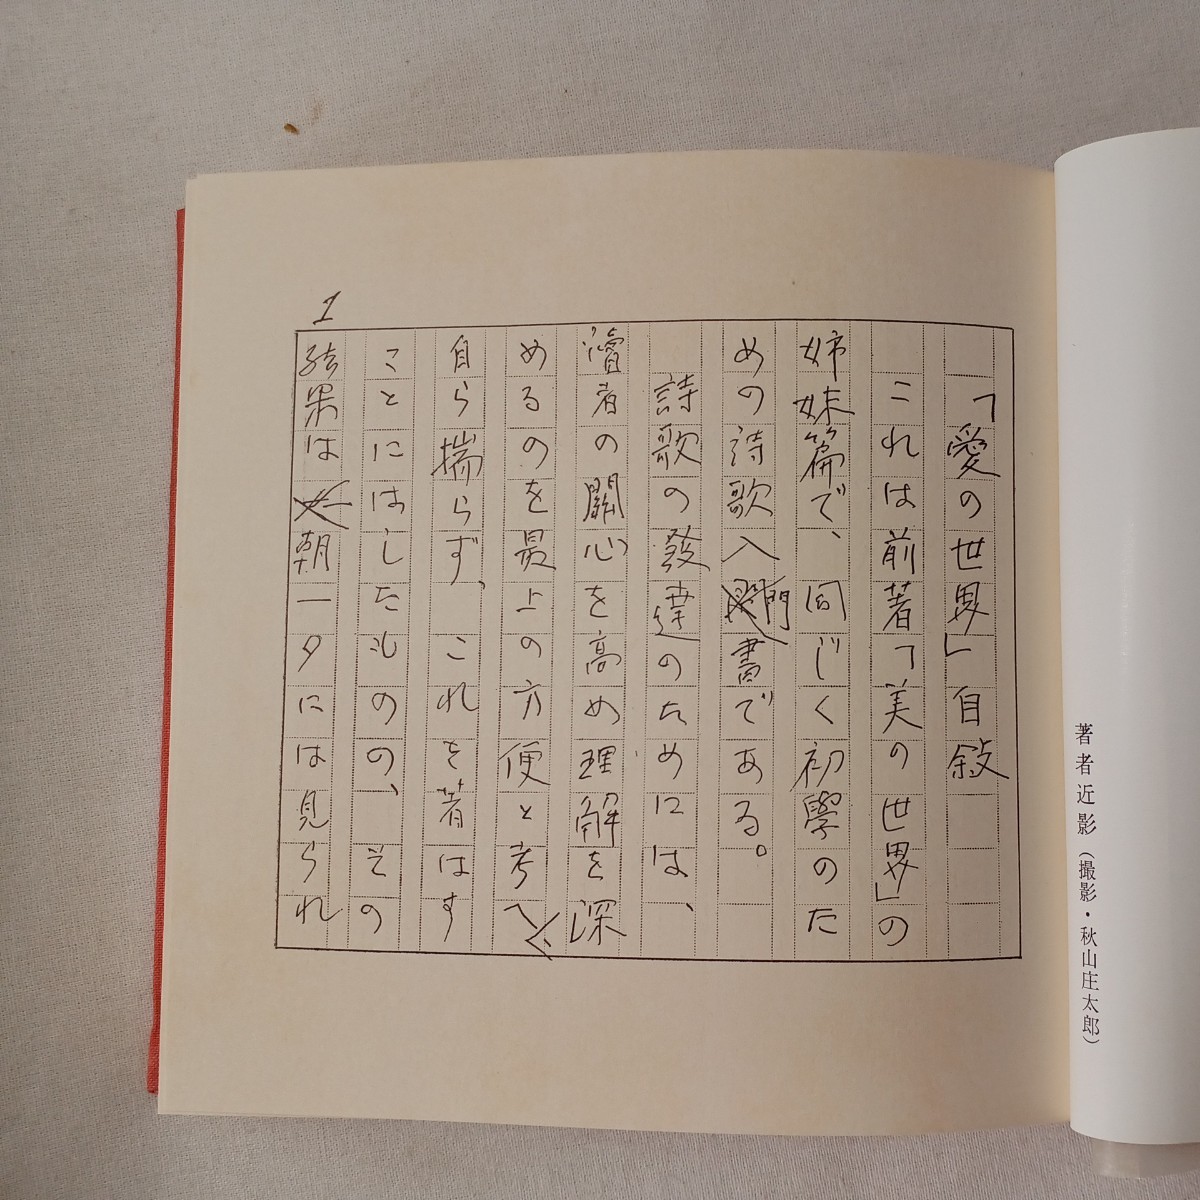 著者近影（撮影・秋山庄太郎）
1
「愛の世界」自敍
これは前著「美の世界」の
姉妹篇で、同じく初學のた
めの詩歌入門書である。
詩歌の發達のためには、
讀者の關心を高め理解を深
めるのを最上の方便と考へ
自ら揣らず、これを著はす
ことにはしたものの、その
結果は一朝一夕には見られ